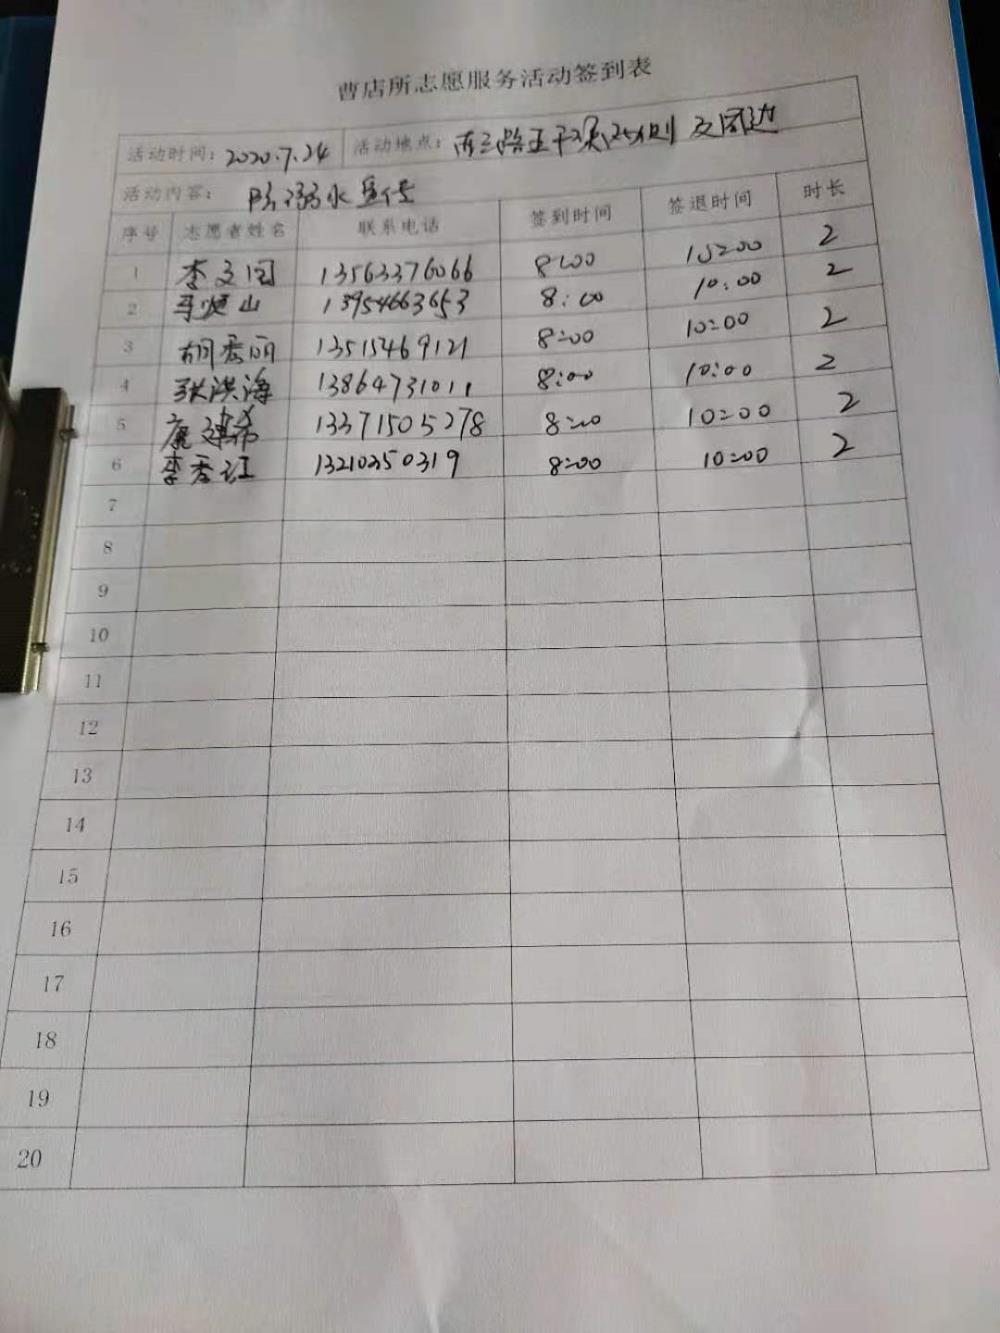 曹店所志愿服务活动签到表
活动时间: 2020.7.24 活动地点: 西三路五干渠 及周边
活动内容: 防溺水宣传
序号 志愿者姓名 联系电话 签到时间 签退时间 时长
1 李文国 13563376066 8:00 10:00 2
2 马 山 13954663653 8:00 10:00 2
3 胡秀丽 13515469121 8:00 10:00 2
4 张洪海 13864731011 8:00 10:00 2
5 康建希 13371505278 8:00 10:00 2
6 李秀江 13210350319 8:00 10:00 2
7
8
9
10
11
12
13
14
15
16
17
18
19
20